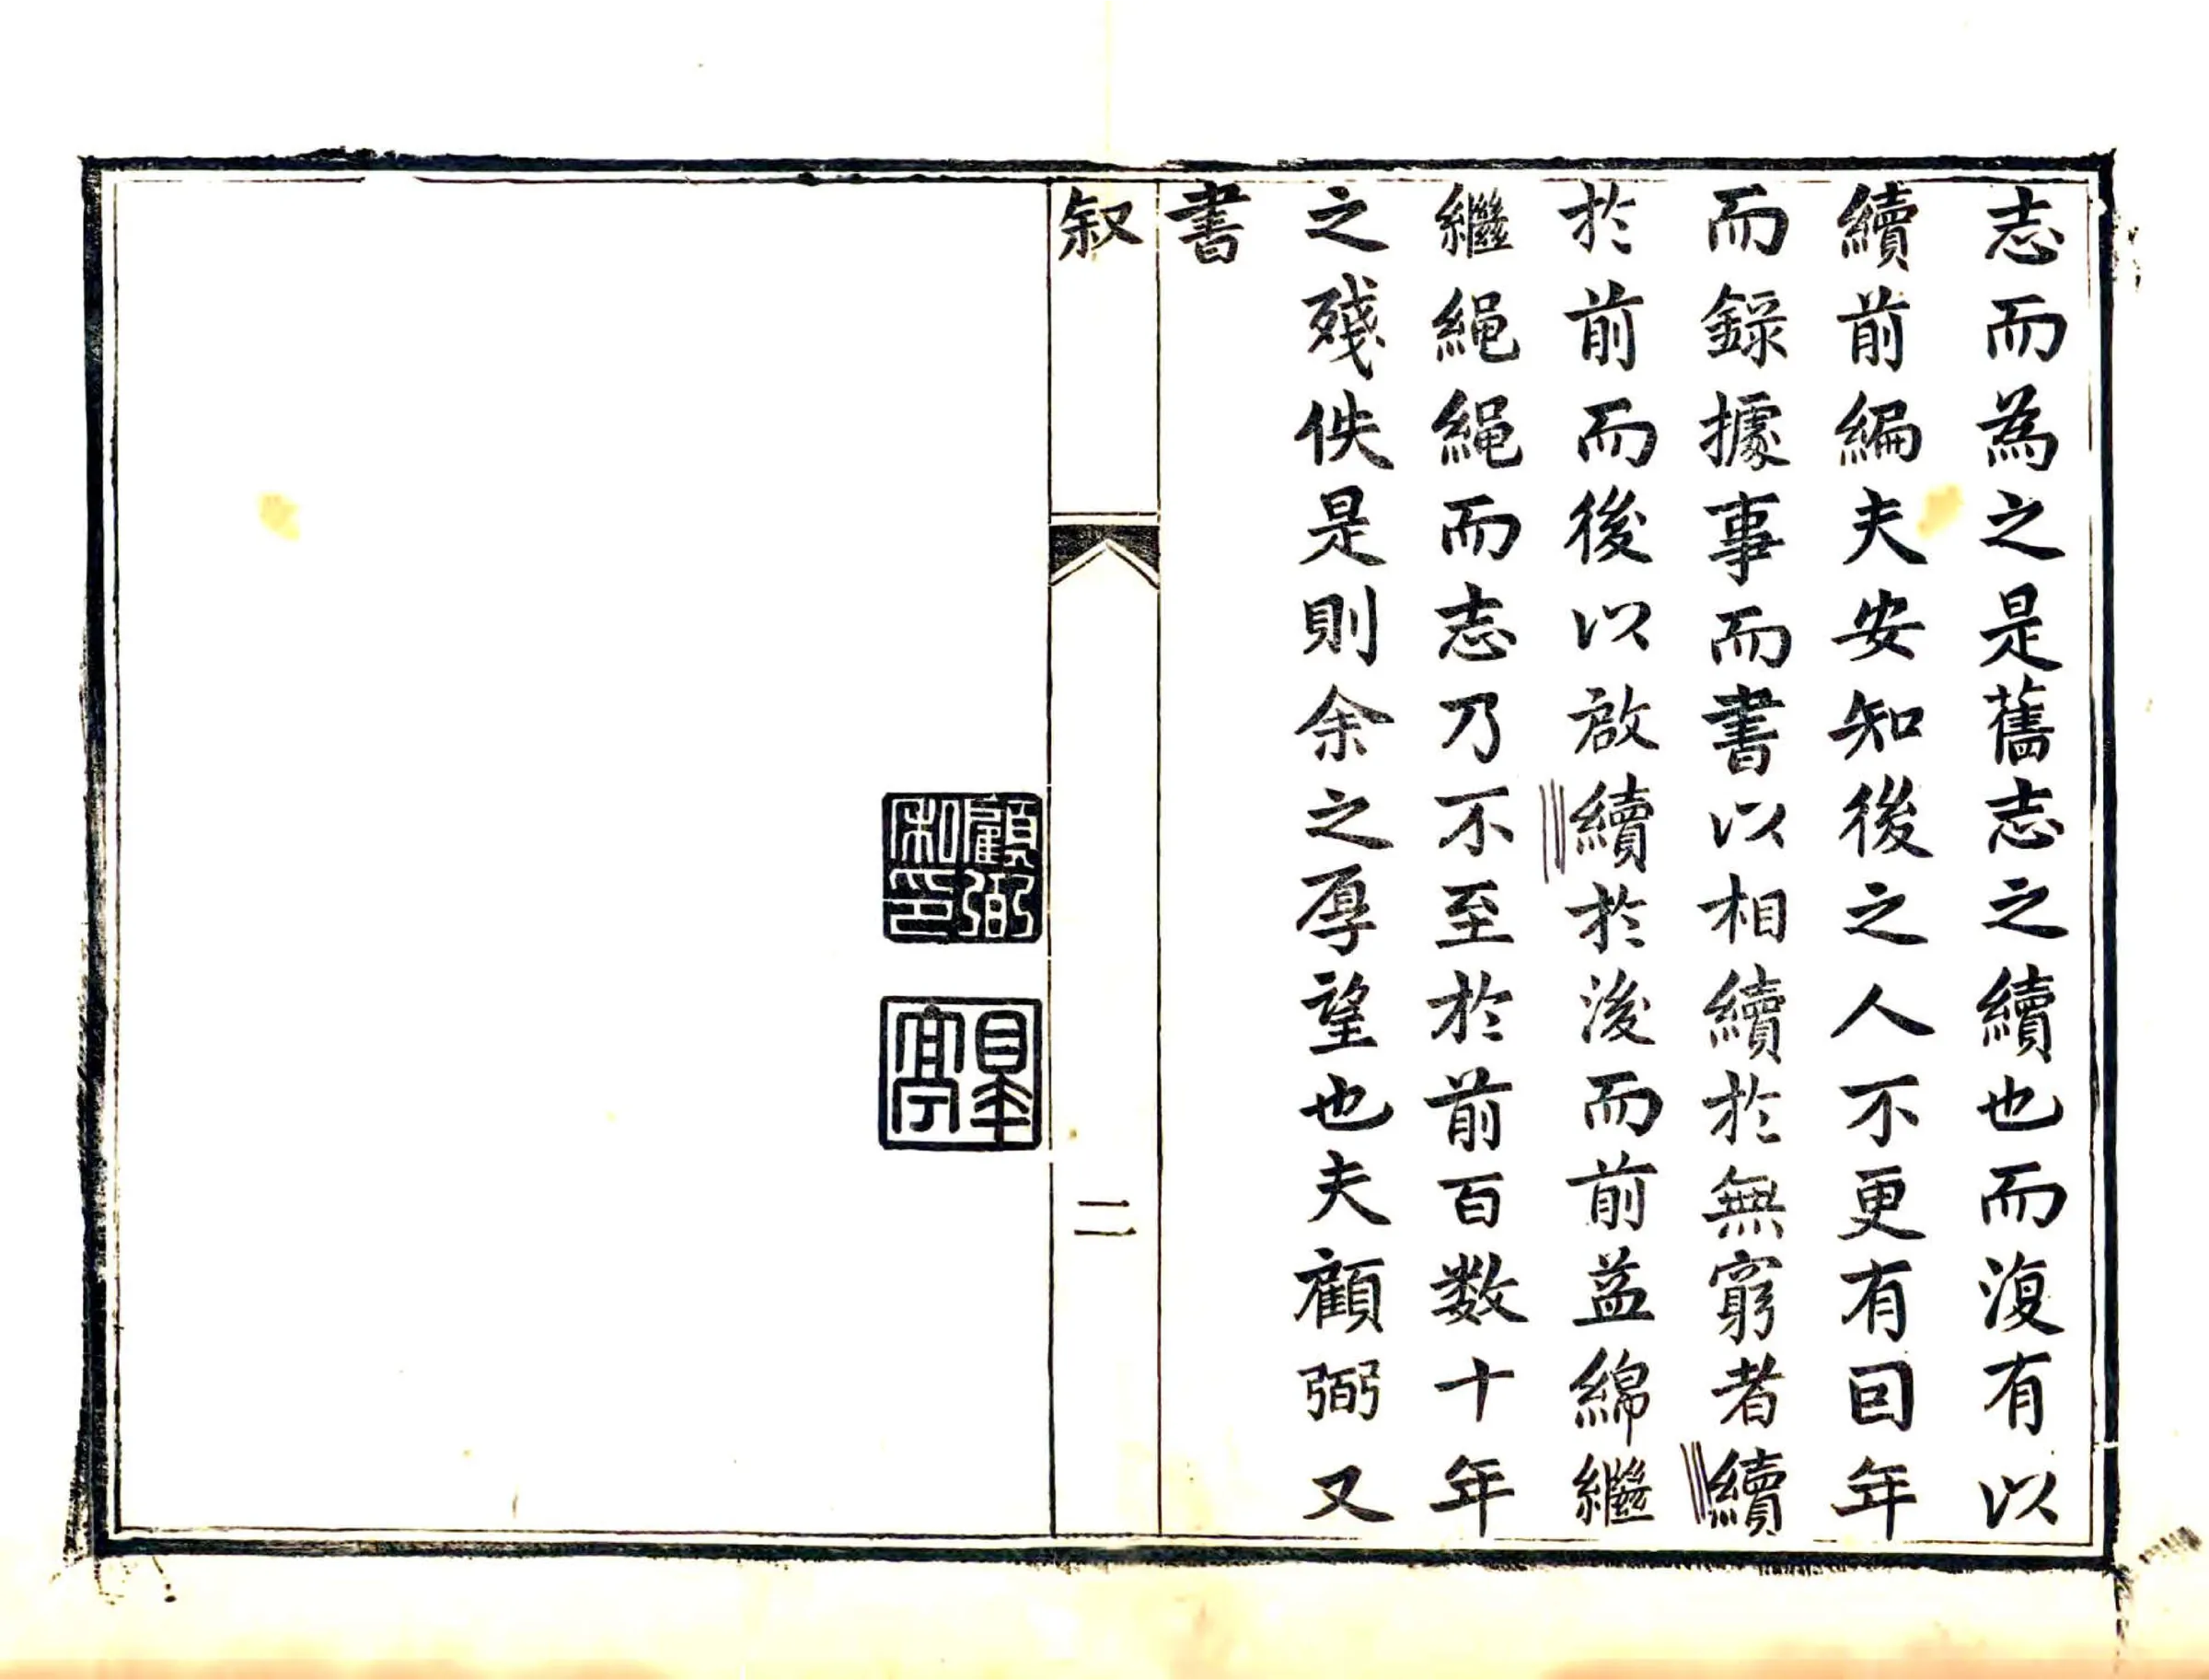 志而為之是舊志之續也而復有以
續前編夫安知後之人不更有回年
而錄據事而書以相續於無窮者續
於前而後以啟續於後而前益綿繼
繼繩繩而志乃不至於前百数十年
之殘佚是則余之厚望也夫顧弼又
書
叙
二
顧弼
私印